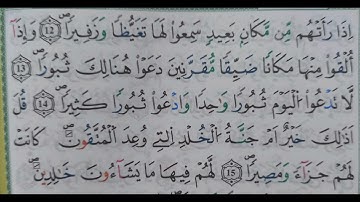 اِذَا رَاَتْهُمْ مِّنْ مَّكَانٍ بَعِيْدٍ سَمِعُوْا لَهَا تَغَيُّظًا وَّزَفِيْرًا ﴿12﴾ وَاِذَآ
اُلْقُوْا مِنْهَا مَكَانًا ضَيِّقًا مُّقَرَّنِيْنَ دَعَوْا هُنَالِكَ ثُبُوْرًا ﴿13﴾
لَا تَدْعُوا الْيَوْمَ ثُبُوْرًا وَّاحِدًا وَّادْعُوْا ثُبُوْرًا كَثِيْرًا ﴿14﴾ قُلْ
اَذٰلِكَ خَيْرٌ اَمْ جَنَّةُ الْخُلْدِ الَّتِيْ وُعِدَ الْمُتَّقُوْنَ ۗ كَانَتْ
لَهُمْ جَزَآءً وَّمَصِيْرًا ﴿15﴾ لَهُمْ فِيْهَا مَا يَشَآءُوْنَ خٰلِدِيْنَ ۗ